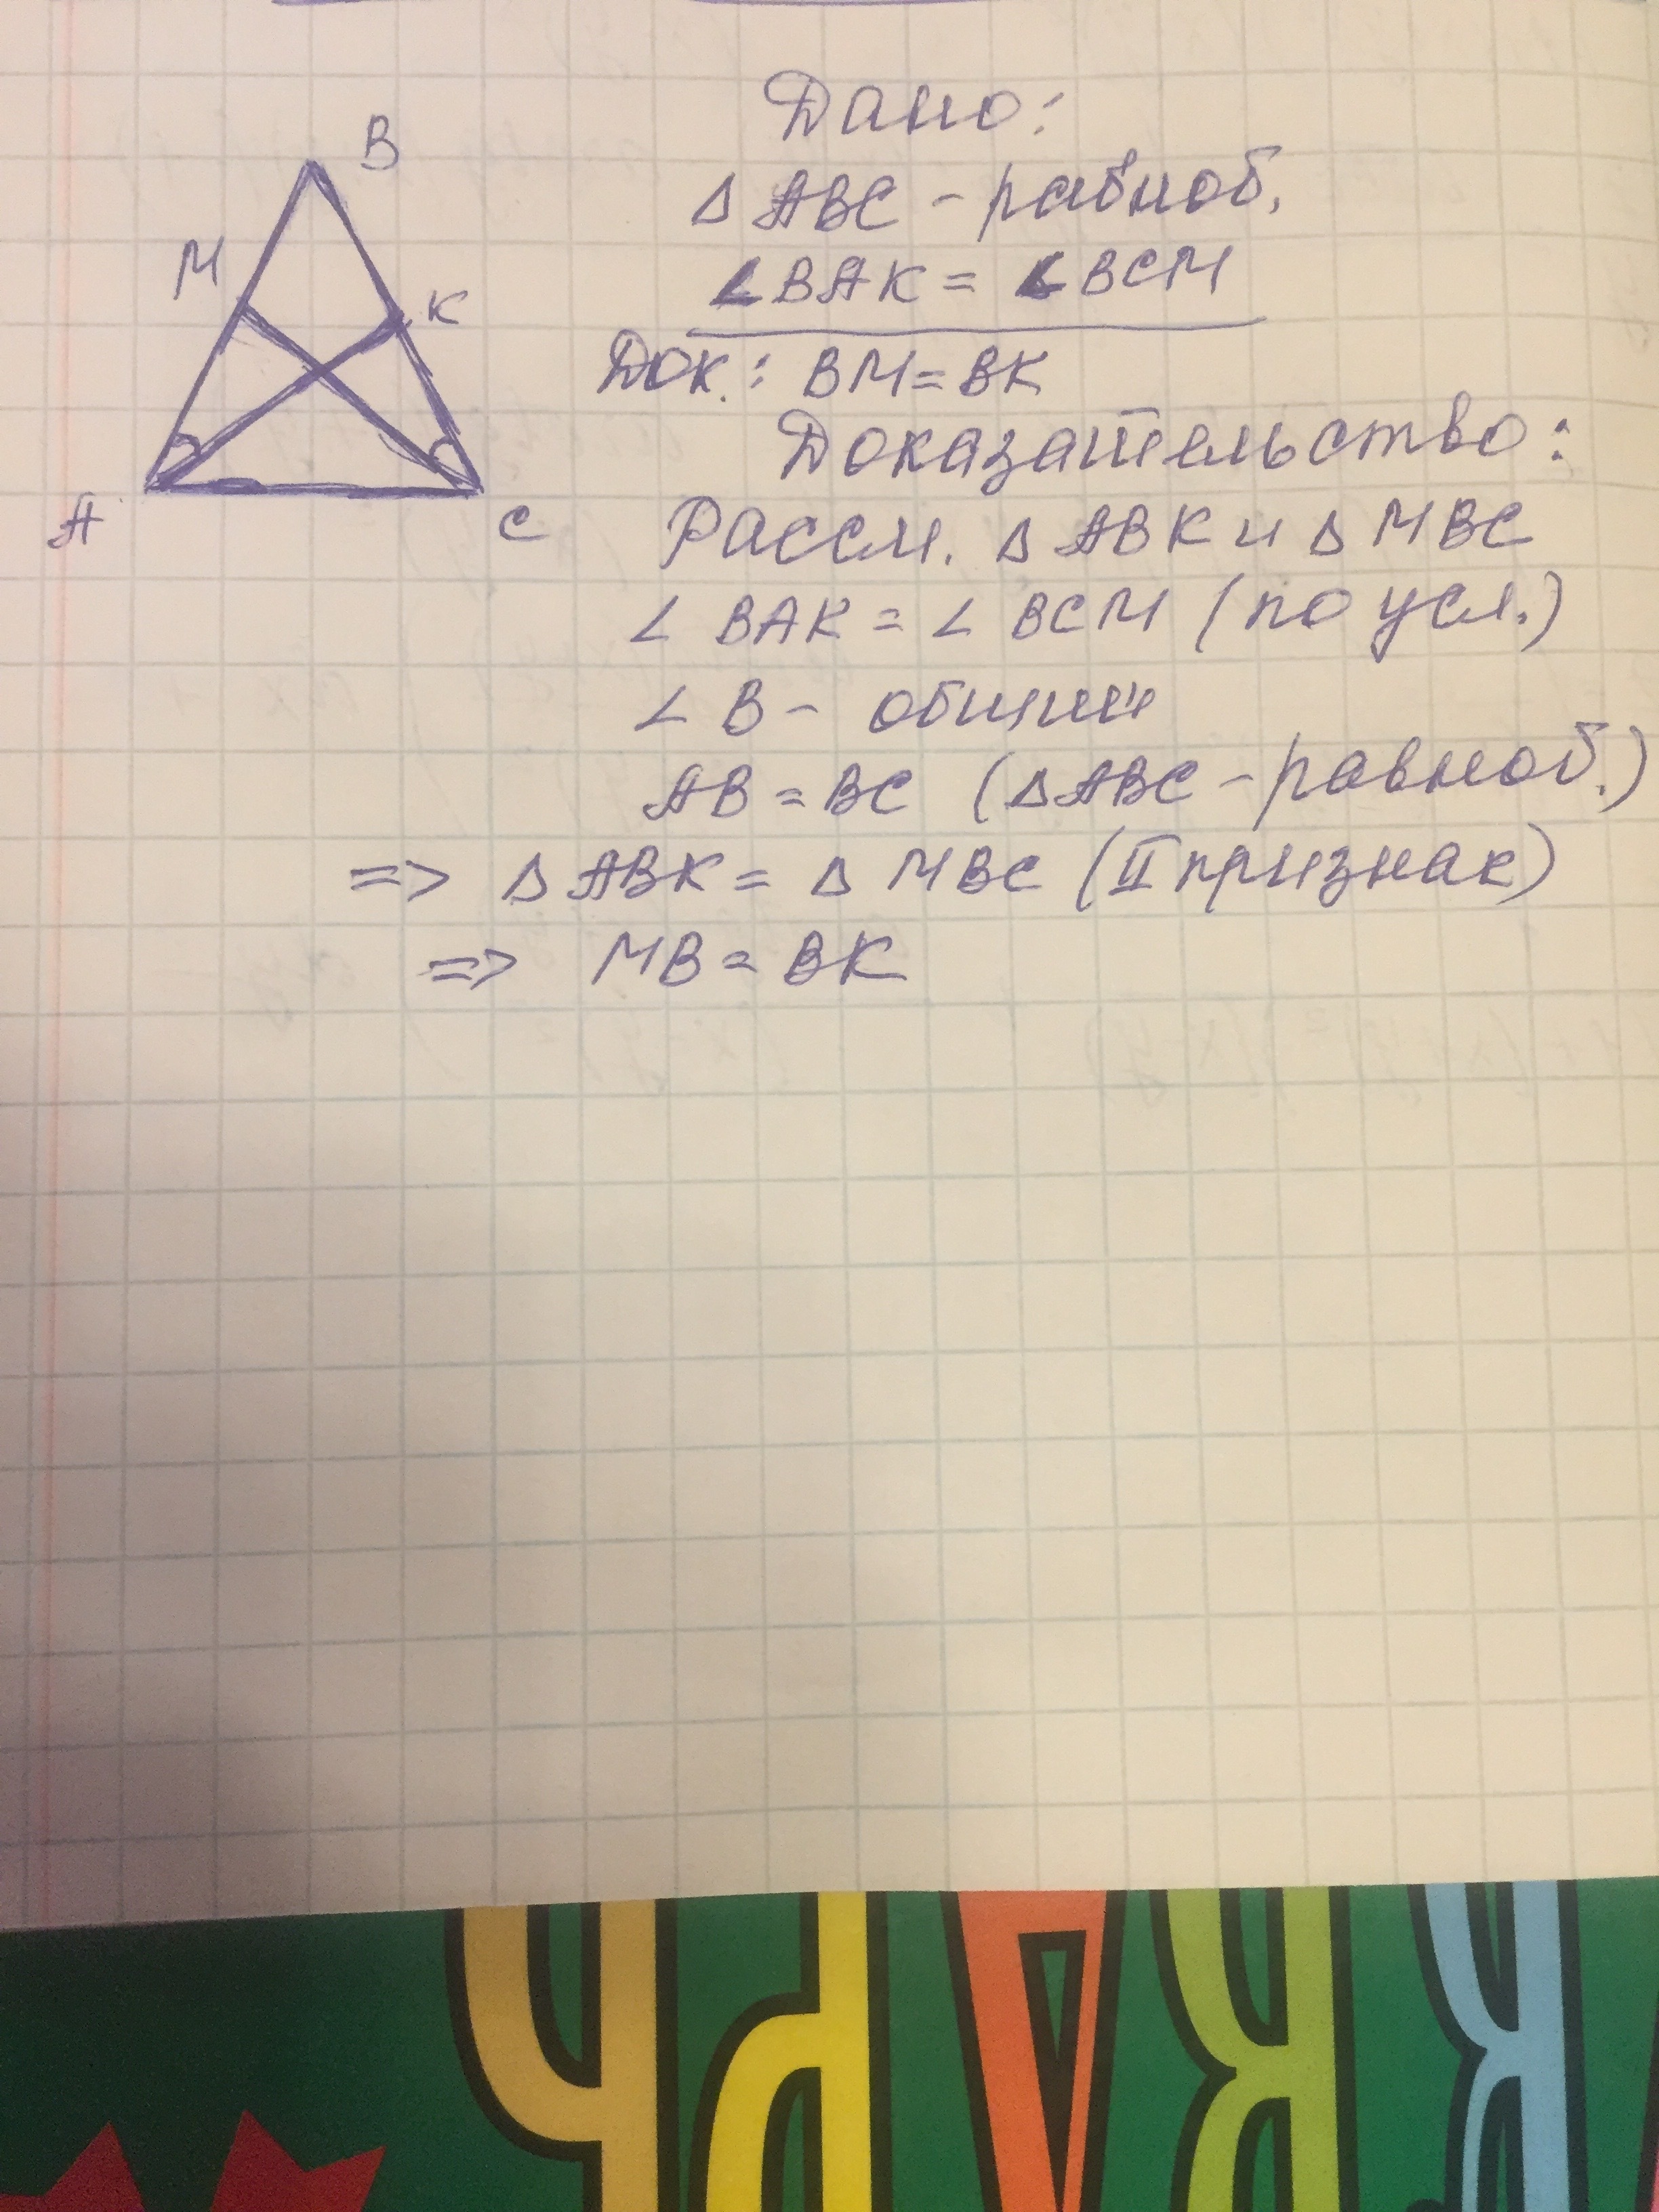 B
M
K
A
C
Дано:
Δ ABC - равноб.
∠BAK = ∠BCM
Док.: BM=BK
Доказательство:
Рассм. Δ ABK и Δ MBC
∠ BAK = ∠ BCM (по усл.)
∠ B - общий
AB = BC (ΔABC - равноб.)
=> Δ ABK = Δ MBC (II признак)
=> MB = BK